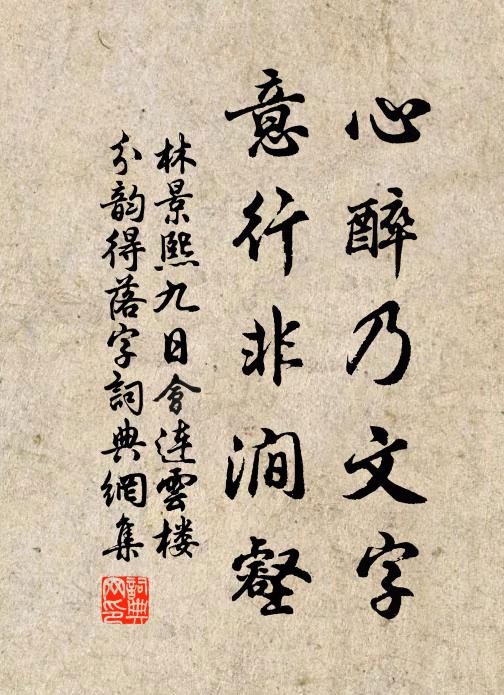 心醉乃文字
意行非澗壑
林景熙九日會連雲楼
分韵得落字詞典網集
詞典网印